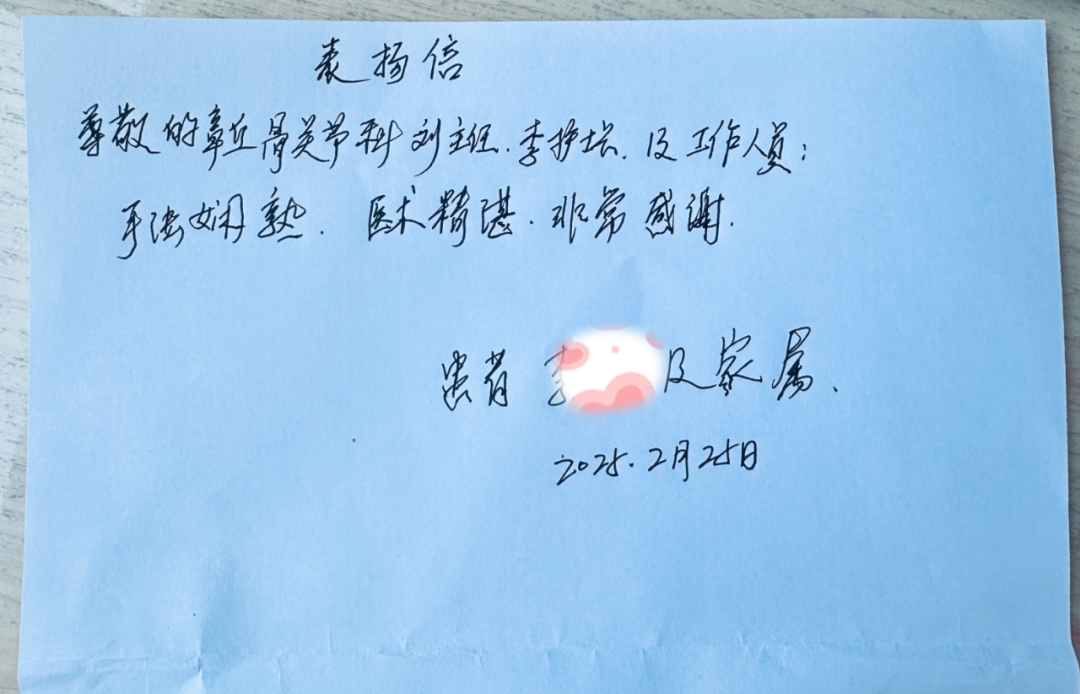 表扬信
尊敬的章丘骨关节科刘主任、李护士长、及工作人员：
手法娴熟、医术精湛、非常感谢.
患者 李 及家属、
2025.2月25日